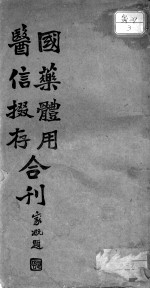 國藥體用
醫信掇存
合刊